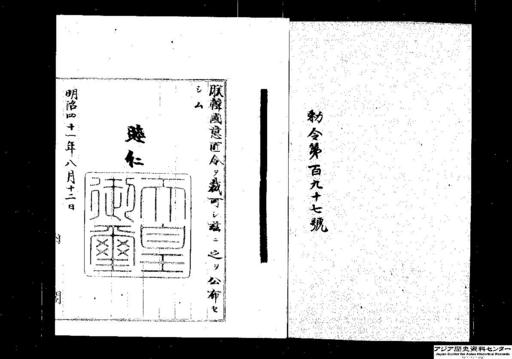 勅令第百九十七號
朕韓國意匠令ヲ裁可シ茲ニ之ヲ公布セ
シム
睦仁
天皇
御璽
明治四十一年八月十二日
内閣
アジア歴史資料センター
Japan Center for Asian Historical Records